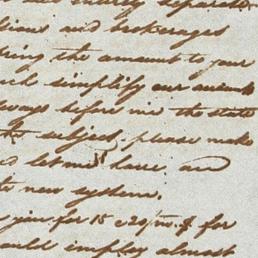 and entirely separate
and brokerages
the amount to your
simplify our accounts
always before me the state
the subject. please make
and let me have and
new system.
you for 15 c 20/m. $ for
would employ almost